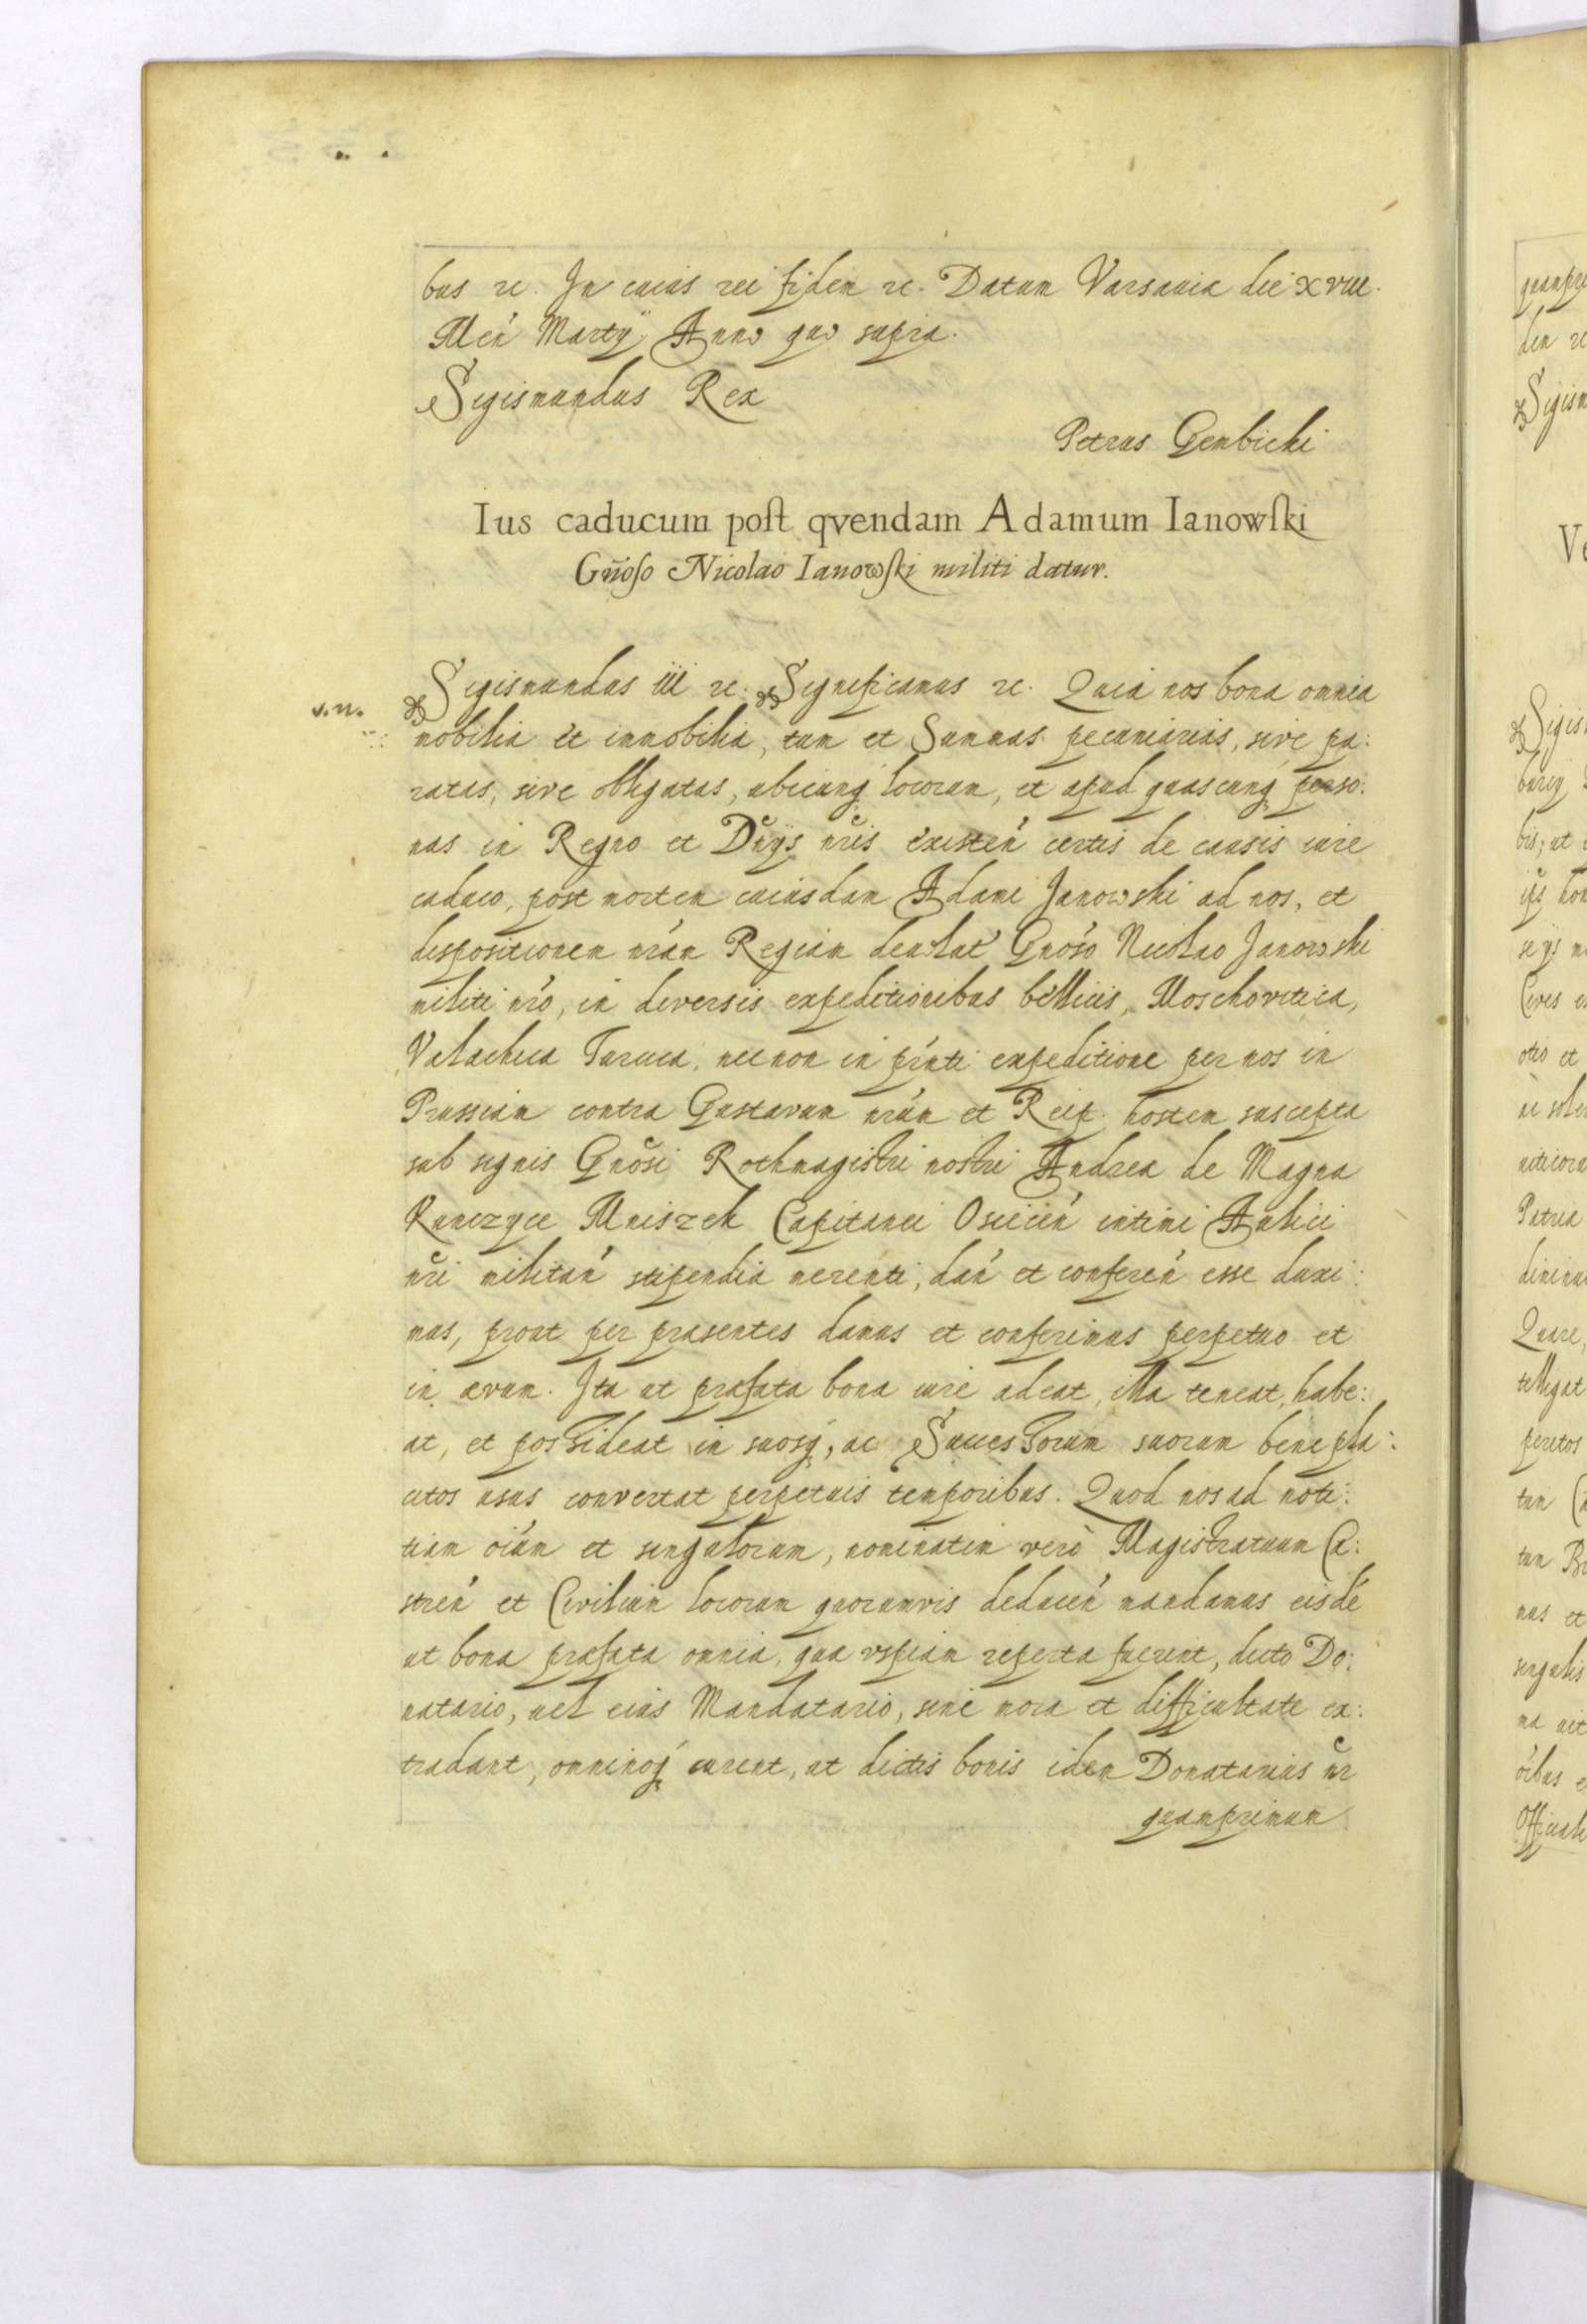 bus etc. In cuius rei fidem etc. Datum Varsauiæ die XVIII.
Meń Martÿ Anno quo supra.
Sigismundus Rex
Petrus Gembicki
Ius caducum post qvendam Adamum Ianowski
Gñoso Nicolao Ianowski militi datur.
v.n.
Sigismundus III etc. Significamus etc. Quia nos bona omnia
mobilia et immobilia, tum et Summas pecuniarias, sive pa:
ratas, sive obligatas, ubicunq locorum, et apud quascunq perso:
nas in Regno et Dnÿs nris existeń certis de causis iure
caduco, post mortem cuiusdam Adami Janowski ad nos, et
dispositionem nrám Regiam devolut' Gnoso Nicolao Janowski
militi nro, in diversis expeditionibus bellicis, Moschovitica,
Valachica Turcica, nec non in pŕnti expeditione per nos in
Prussiam contra Gustavum nrúm et Reip. hostem suscepta
sub signis Gnosi Rothmagistri nostri Andreæ de Magna
Kunczyce Mniszek Capitanei Osiecień intimi Aulici
nri militań stipendia merenti, dań et confereń esse duxi:
mus, prout per præsentes damus et conferimus perpetuo et
in ævum. Ita ut præfata bona iure adeat, illa teneat, habe:
at, et possideat in suosq, ac Successorum suorum benepla:
citos usus convertat perpetuis temporibus. Quod nos ad noti:
tiam oium et singulorum, nominatim verò Magistratuum Ca:
streń et Civilium locorum quorumvis deduceń mandamus eisdé
ut bona præfata omnia, quæ vspiam reperta fuerint, dicto Do:
natario, uel eius Mandatario, sine mora et difficultate ex:
tradant, omninoq curent, ut dictis bonis idem Donatarius nr
quamprimum